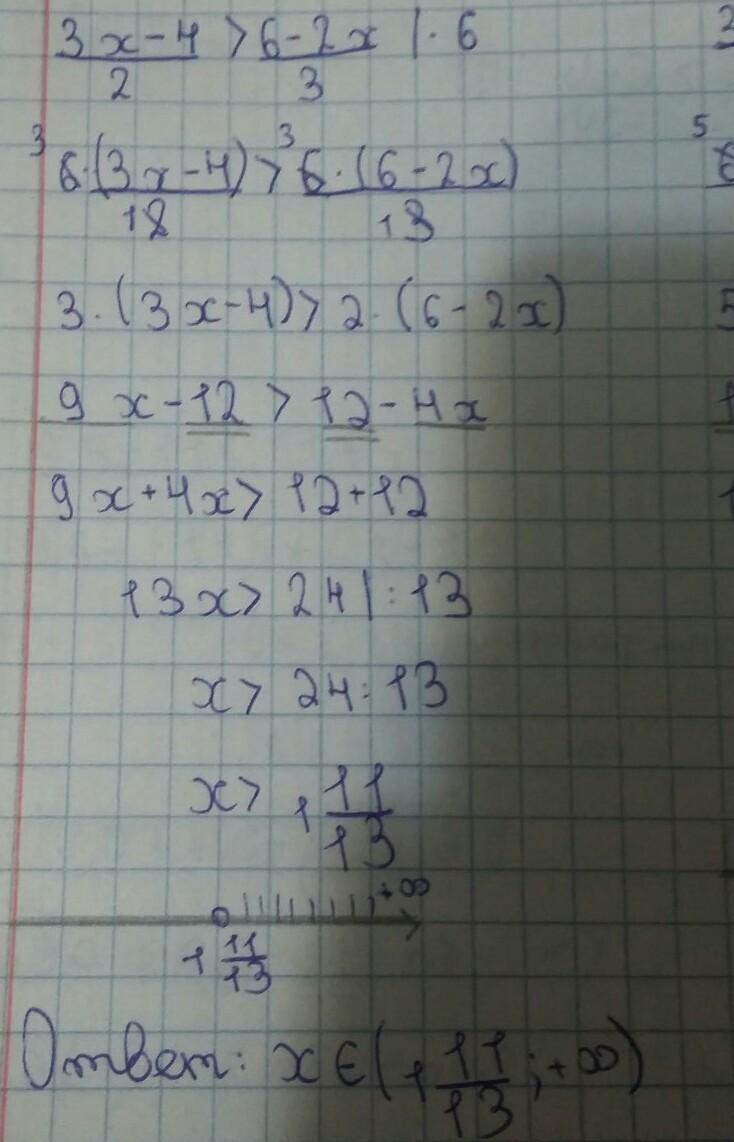 3x-4/2 > 6-2x/3 |·6
3 6·(3x-4)/12 > 3 6·(6-2x)/13
3·(3x-4)>2·(6-2x)
9x-12>12-4x
9x+4x>12+12
13x>24|:13
x>24:13
x>1 11/13
+∞
1 11/13
Ответ: x∈(1 11/13;+∞)